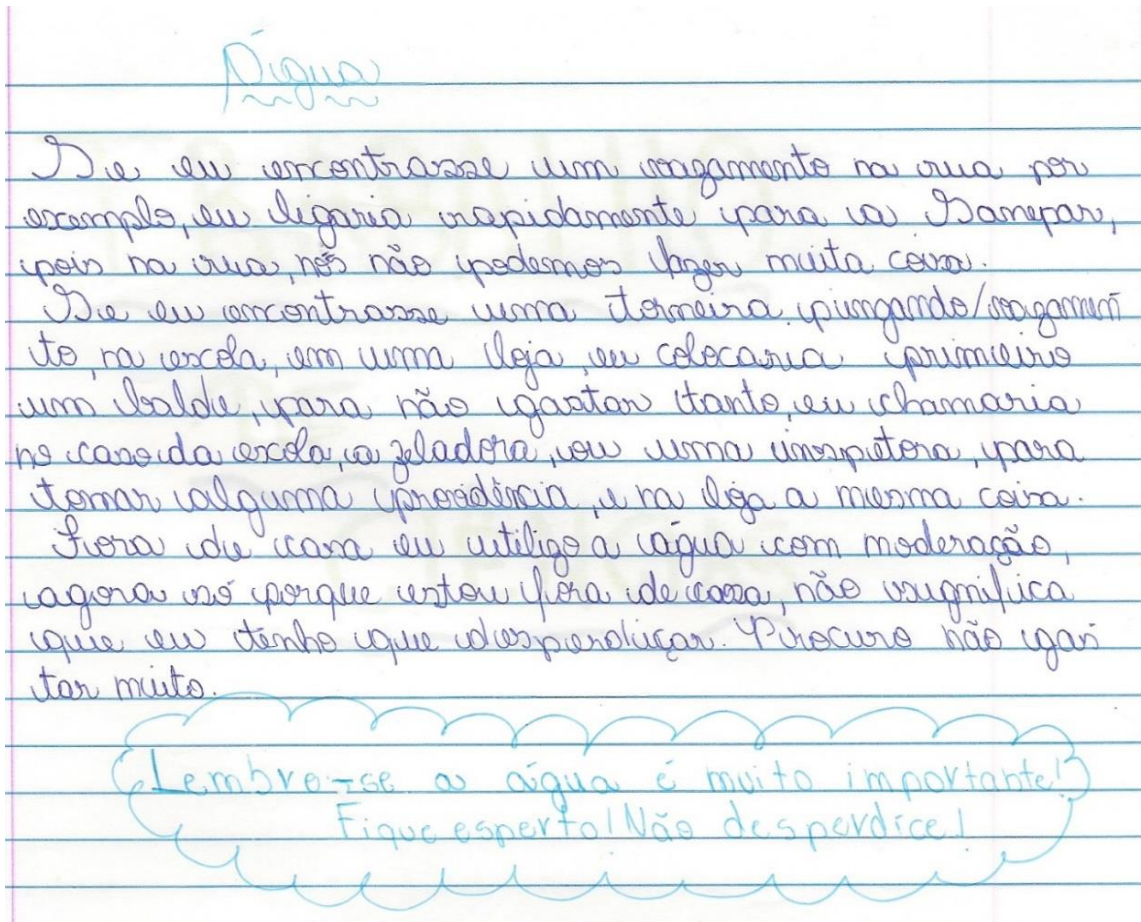 Água
Se eu encontrasse um vazamento na rua por
exemplo, eu ligaria rapidamente para a Sanepar,
pois na rua, nós não podemos fazer muita coisa.
Se eu encontrasse uma torneira pingando/vazamen
to, na escola, em uma loja, eu colocaria primeiro
um balde, para não gastar tanto, eu chamaria
no caso da escola, a zeladora, ou uma inspetora, para
tomar alguma providência, e na loja a mesma coisa.
Fora de casa eu utilizo a água com moderação,
agora só porque estou fora de casa, não significa
que eu tenho que desperdiçar. Procuro não gas
tar muito.
Lembre-se a água é muito importante!
Fique esperto! Não desperdice!